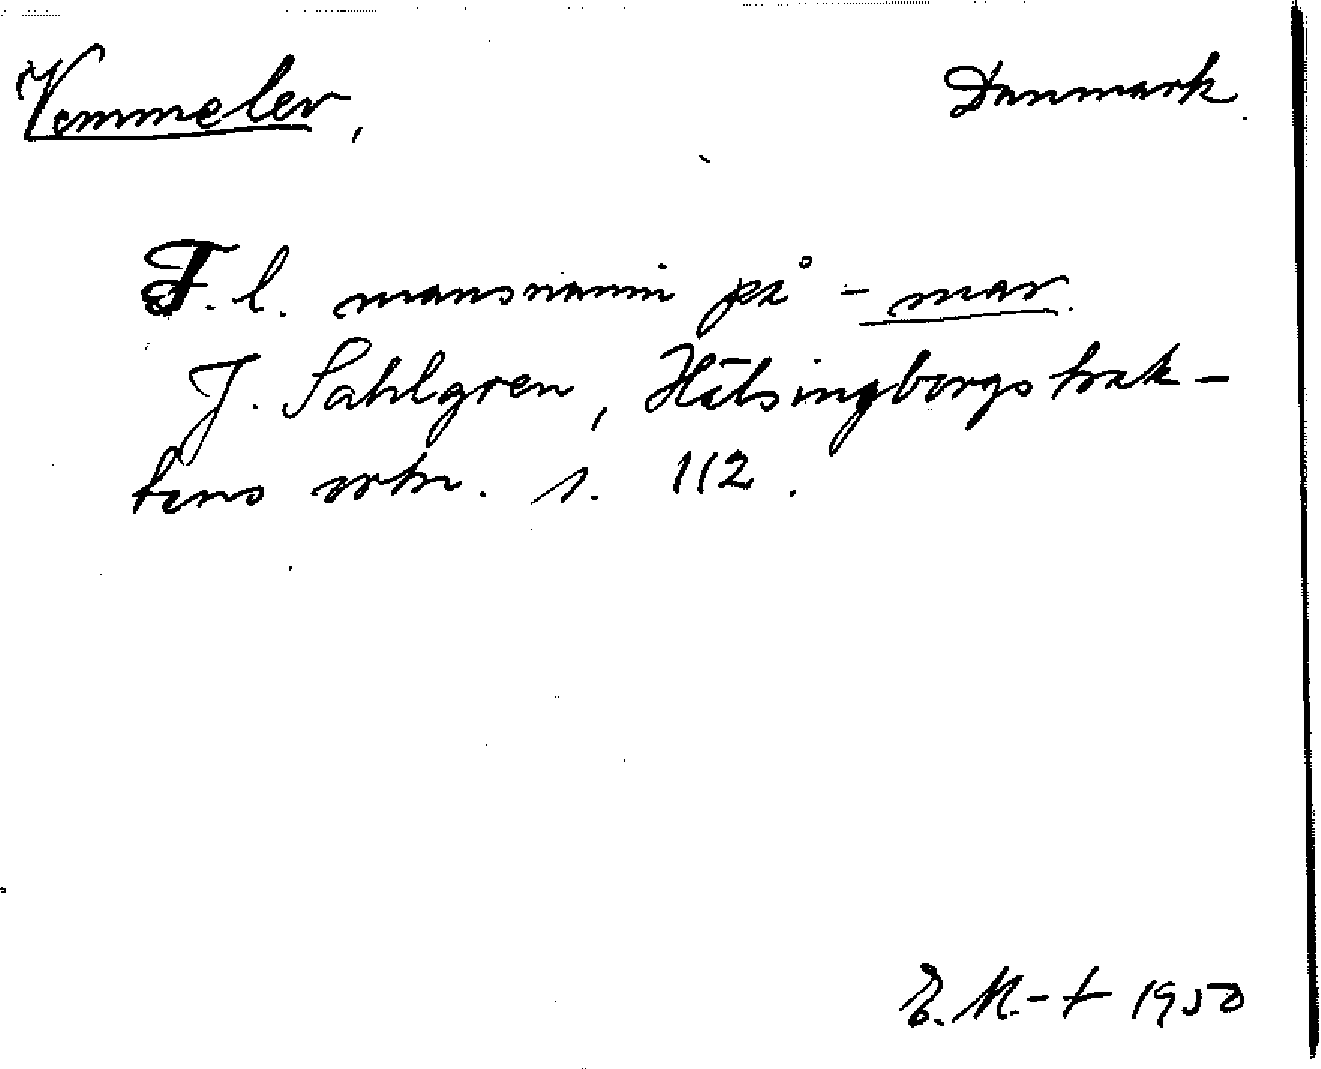 Vemmelev, Danmark.
F. l. mansnamn på -mar.
J. Sahlgren, Hälsingborgstrak-
tens ortn. s. 112.
E. M-t 1950